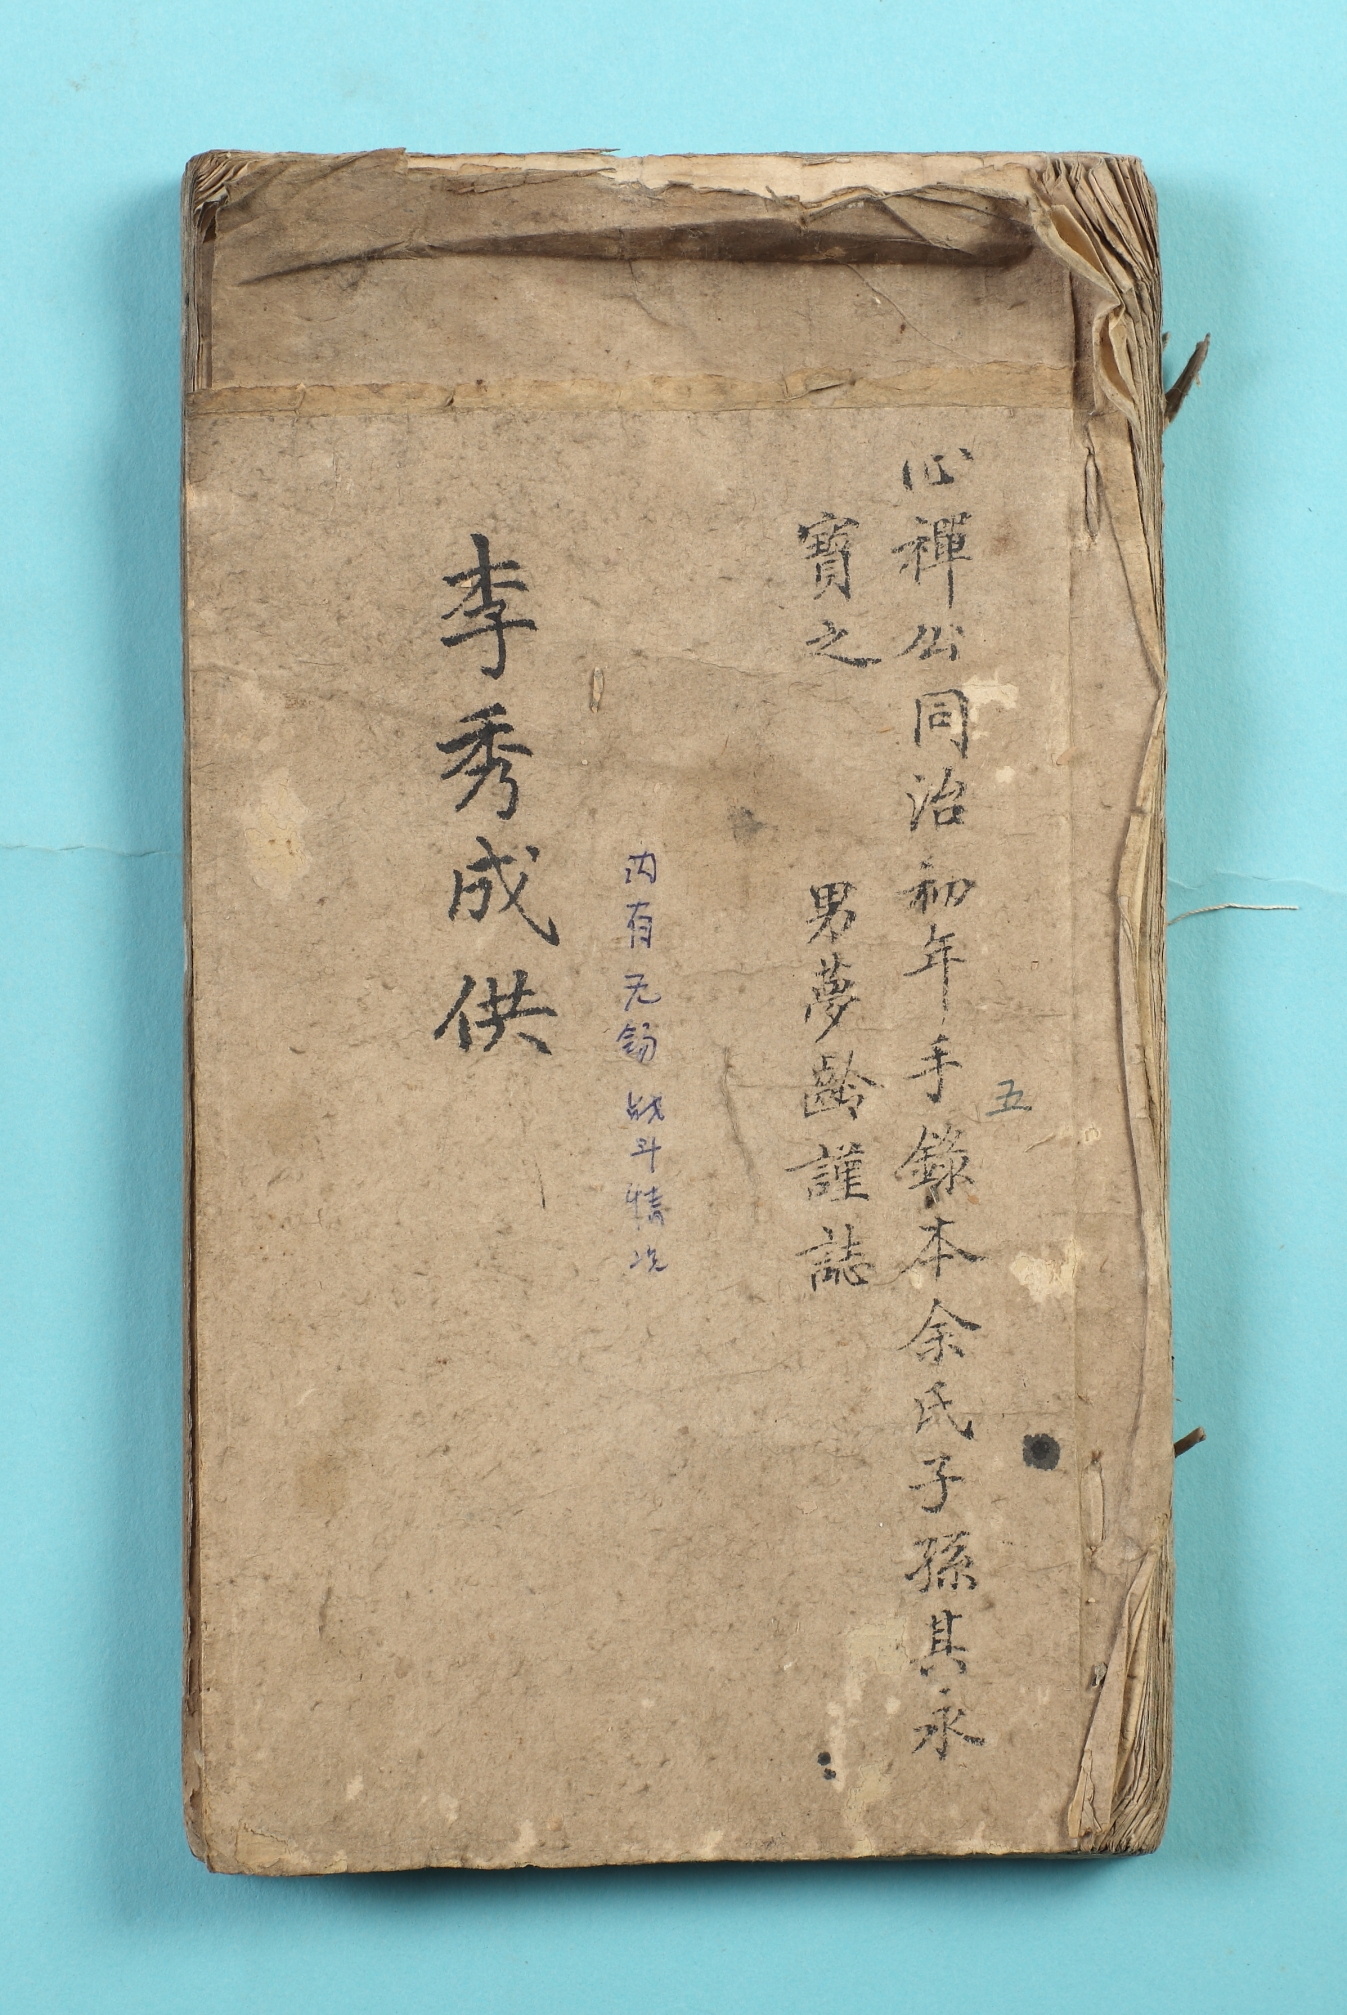 五
心禪公同治初年手錄本余氏子孫其永
寶之 男夢齡謹誌
内有无锡战斗情况
李秀成供